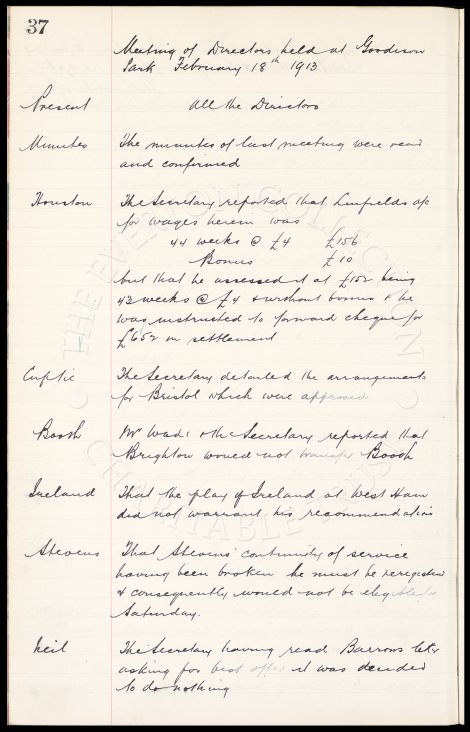 37
Meeting of Directors held at Goodison
Park February 18th 1913
Present All the Directors
Minutes The minutes of last meeting were read
and confirmed
Houston The Secretary reported that Linfields a/c
for wages herein was
44 weeks @ £4 £156
Bonus £10
but that he assessed it at £152 being
43 weeks @ £4 & without bonus & he
was instructed to forward cheque for
in settlement
Cup tie The Secretary detailed the arrangements
for Bristol which were approved
Booth Mr Wade & the Secretary reported that
Brighton would not transfer Booth
Ireland That the play of Ireland at West Ham
did not warrant his recommendation
Stevens That Stevens' continuity of service
having been broken he must be reregistered
& consequently would not be eligible for
Saturday.
Neil The Secretary having read Barrows letter
asking for best offer it was decided
to do nothing
THE EVERTON COLLECTION
CHARITABLE TRUST